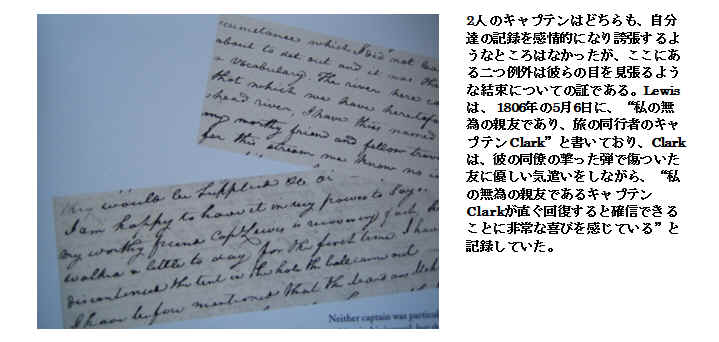 circumstance which I did not
about to set out and it was
a vocabulary. The river here
that which we have
river, I have this named
my worthy friend and fellow
for this stream we know no
would be supplied
I am happy to have it in my power to say
my worthy friend Capt Lewis is recovering fast, he
walked a little to day for the first time. I have
discontinued the tent in the hole the ball came out
I have before mentioned that the
Neither captain was particul
2人のキャプテンはどちらも、自分
達の記録を感情的になり誇張するよ
うなところはなかったが、ここにあ
る二つ例外は彼らの目を見張るよう
な結束についての証である。Lewis
は、1806年の5月6日に、“私の無
為の親友であり、旅の同行者のキャ
プテンClark”と書いており、Clark
は、彼の同僚の撃った弾で傷ついた
友に優しい気遣いをしながら、“私
の無為の親友であるキャプテン
Clarkが直ぐ回復すると確信できる
ことに非常な喜びを感じている”と
記録していた。